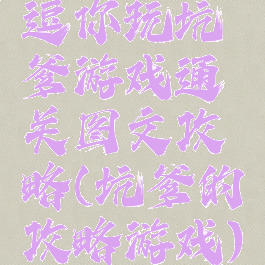 逗你玩坑
爹游戏通
关图文攻
略(坑爹的
攻略游戏)